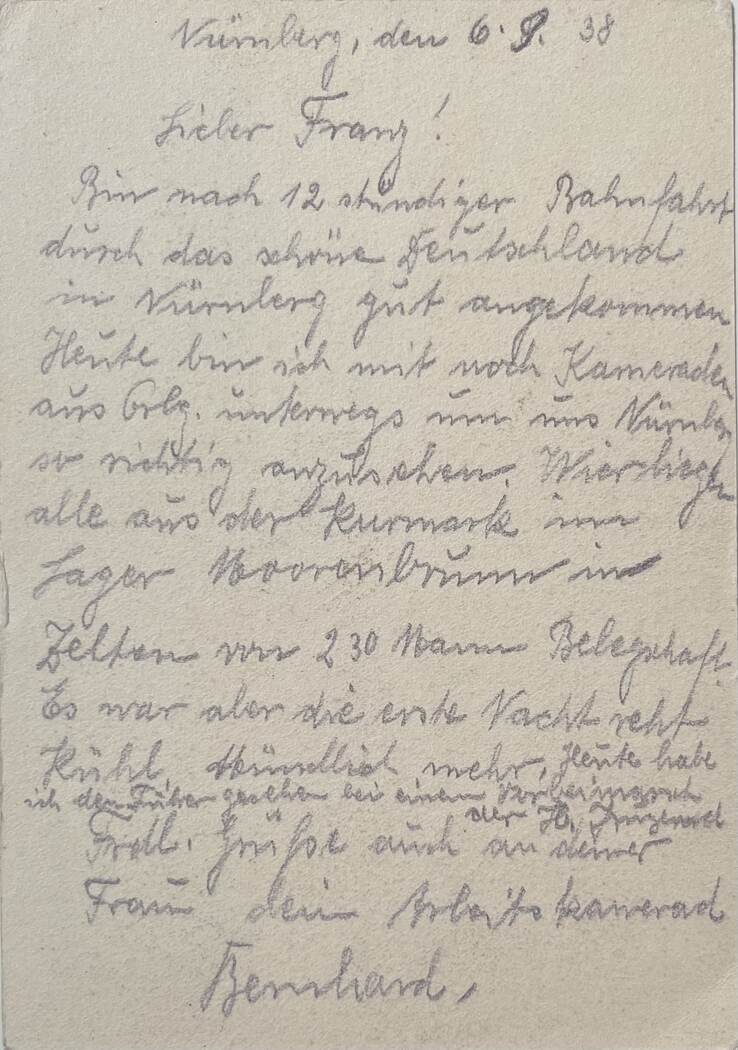 Nürnberg, den 6. 9. 38
Lieber Franz!
Bin nach 12 stündiger Bahnfahrt
durch das schöne Deutschland
in Nürnberg gut angekommen
Heute bin ich mit noch Kameraden
aus Orlg. unterwegs um uns Nürnberg
so richtig anzusehen. Wier liegen
alle aus der Kurmark im
Lager Moorenbrunn in
Zelten von 230 Mann Belegschaft.
Es war aber die erste Nacht recht
Kühl. Mündlich mehr, Heute habe
ich den Führer gesehen bei einem Vorbeimarsch
der H. Jugend
Frdl. Grüße auch an deiner
Frau dein Arbeitskamerad
Bernhard,